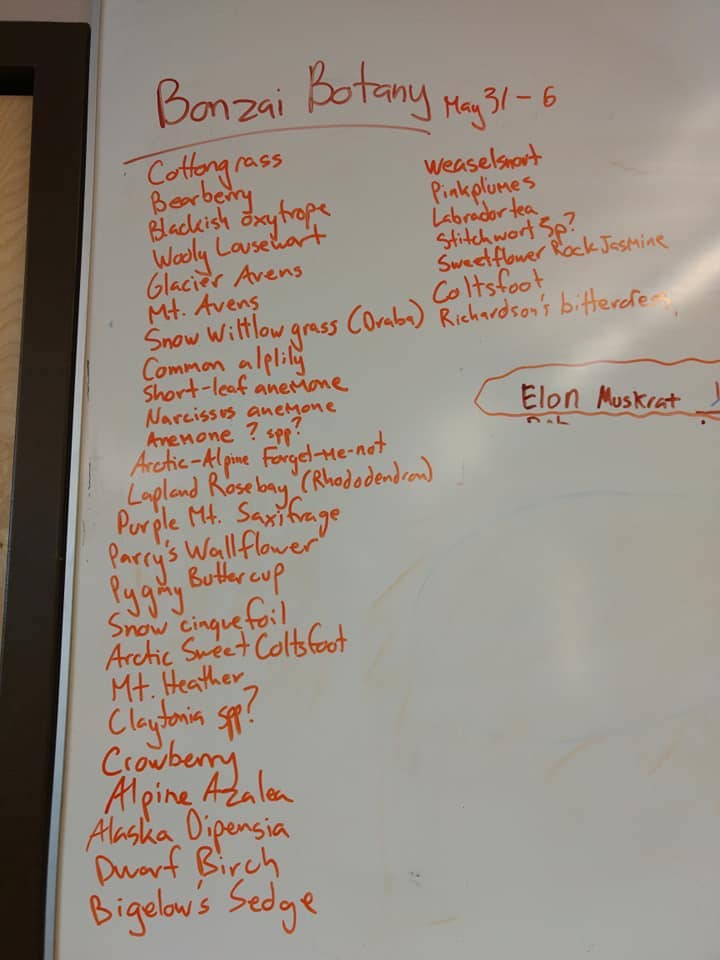 Bonzai Botany May 31 - 6
Cottongrass
Bearberry
Blackish Oxytrope
Wooly Lousewort
Glacier Avens
Mt. Avens
Snow Wittlow grass (Draba)
Common alplily
Short-leaf anemone
Narcissus anemone
Anemone ? spp?
Arctic-Alpine Forget-Me-not
Lapland Rosebay (Rhododendron)
Purple Mt. Saxifrage
Parry's Wallflower
Pygmy Buttercup
Snow cinquefoil
Arctic Sweet Coltsfoot
Mt. Heather
Claytonia spp?
Crowberry
Alpine Azalea
Alaska Dipensia
Dwarf Birch
Bigelow's Sedge
Weaselsnort
Pinkplumes
Labrador tea
Stitchwort Sp?
Sweetflower Rock Jasmine
Coltsfoot
Richardson's bittercress
Elon Muskrat